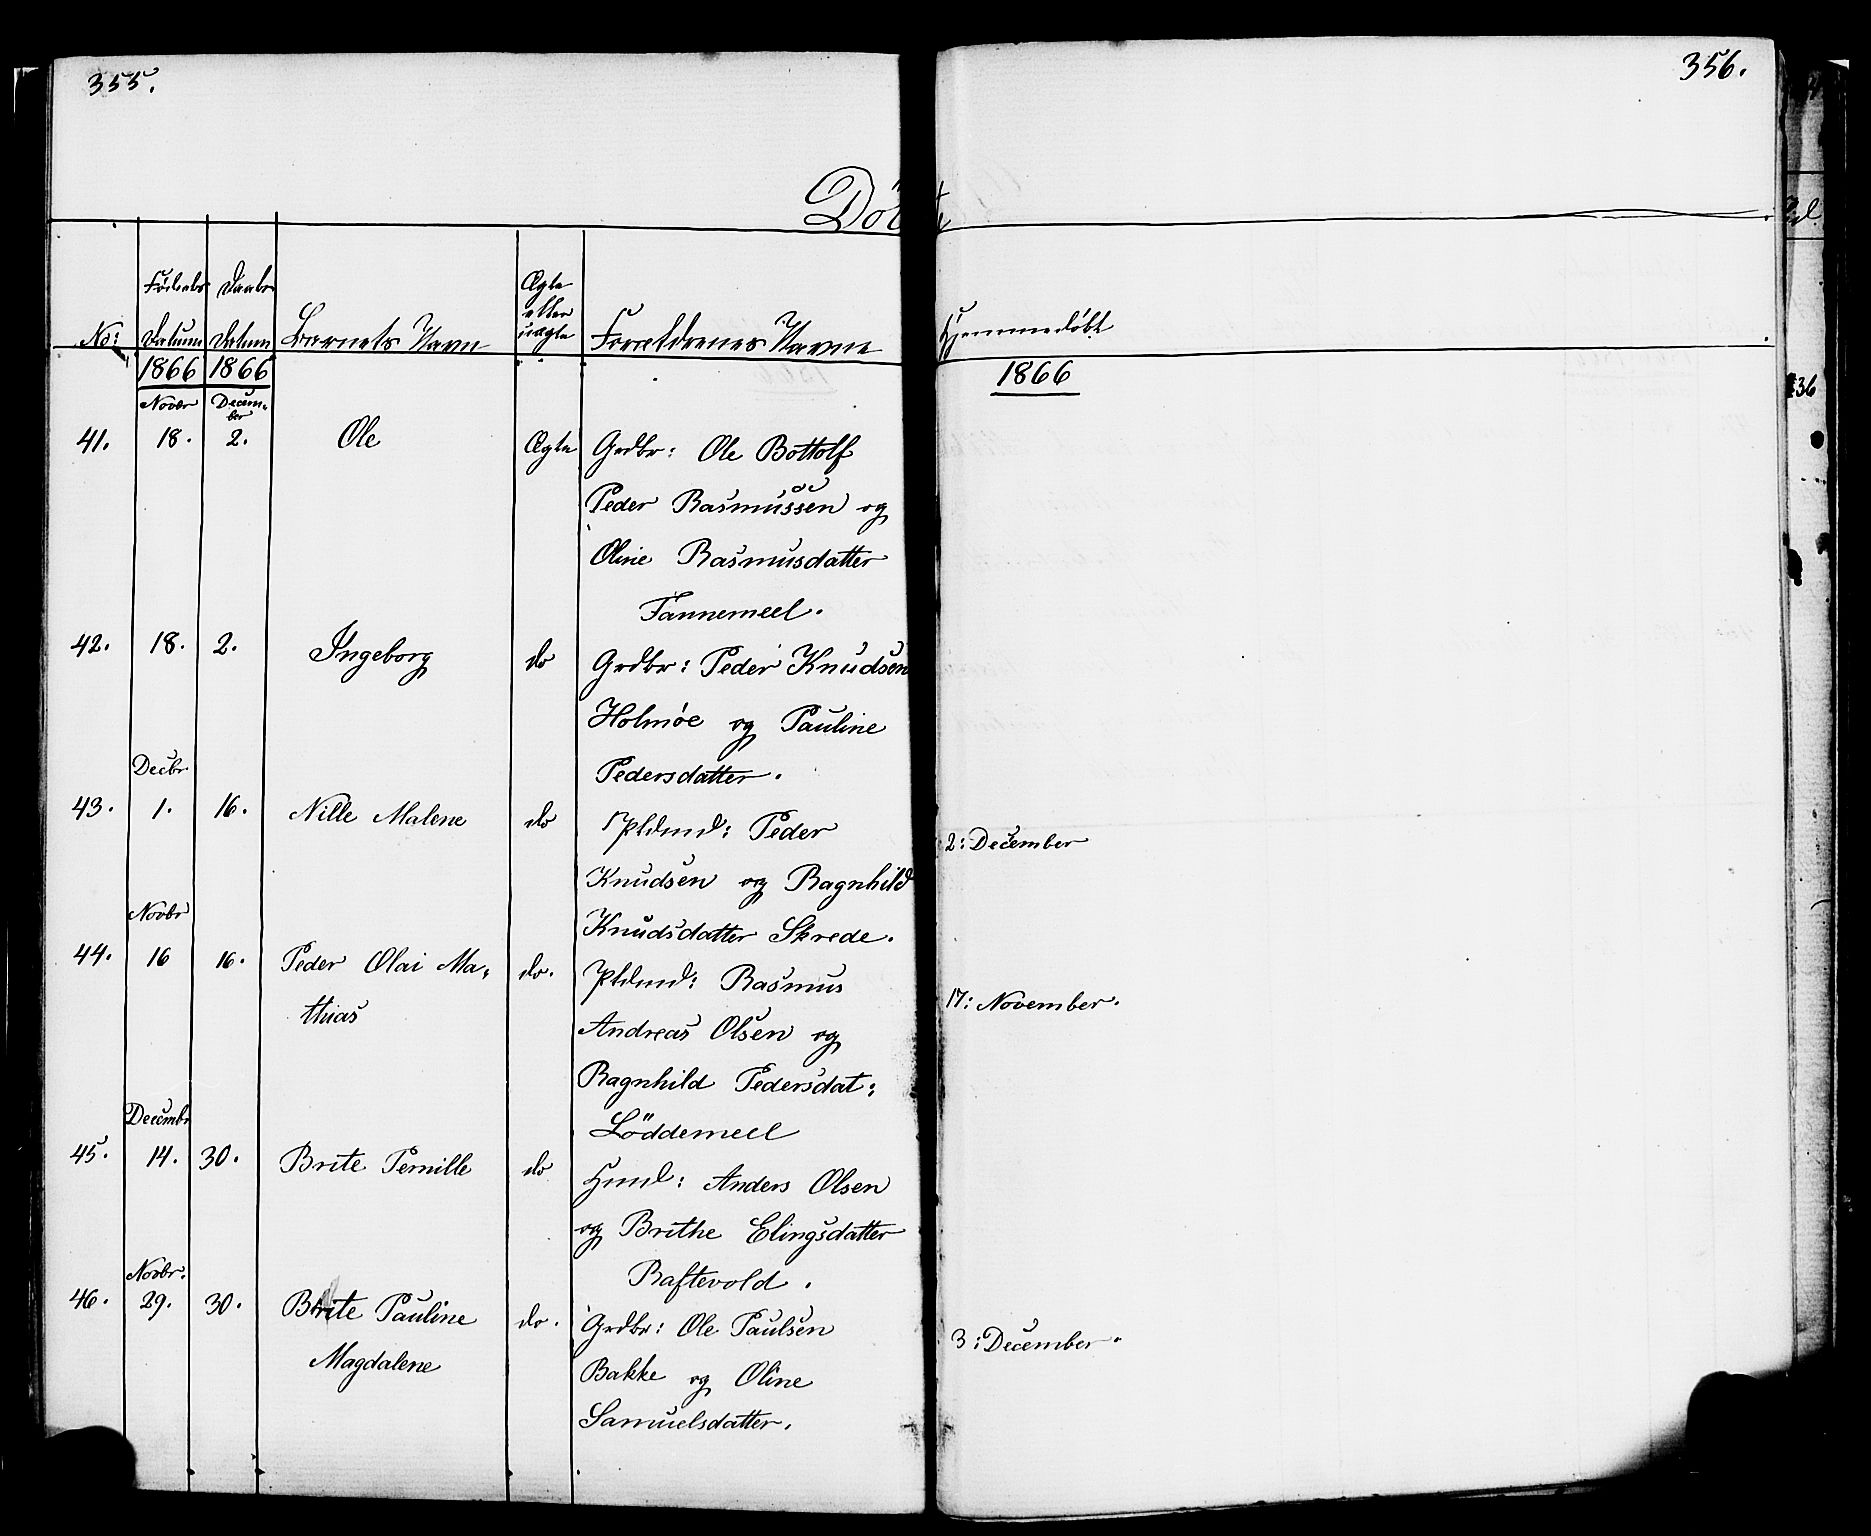 355.
Döbte
No:
Fødsels Datum
Daabs Datum
Barnets Navn
Ægte eller uægte
Forældrenes Navne
1866 1866
Novbr Decem-
ber
41. 18. 2. Ole Ægte Grdbr: Ole Bottolf
Peder Rasmussen og
Oline Rasmusdatter
Tannemeel.
42. 18. 2. Ingeborg do Grdbr: Peder Knudsen
Holmøe og Pauline
Pedersdatter.
Decbr
43. 1. 16. Nille Malene do Pldmd: Peder
Knudsen og Ragnhild
Knudsdatter Skrede.
Novbr
44. 16 16. Peder Olai Ma-
thias
do. Pldmd: Rasmus
Andreas Olsen og
Ragnhild Pedersdat:
Löddemeel
Decembr
45. 14. 30. Brite Pernille do Hmd: Anders Olsen
og Brithe Elingsdatter
Raftevold.
Novbr.
46. 29. 30. Brite Pauline
Magdalene
do. Grdbr: Ole Paulsen
Bakke og Oline
Samuelsdatter.
356.
Hjemmedøbt
1866
2: December
17: November.
3: December.
36